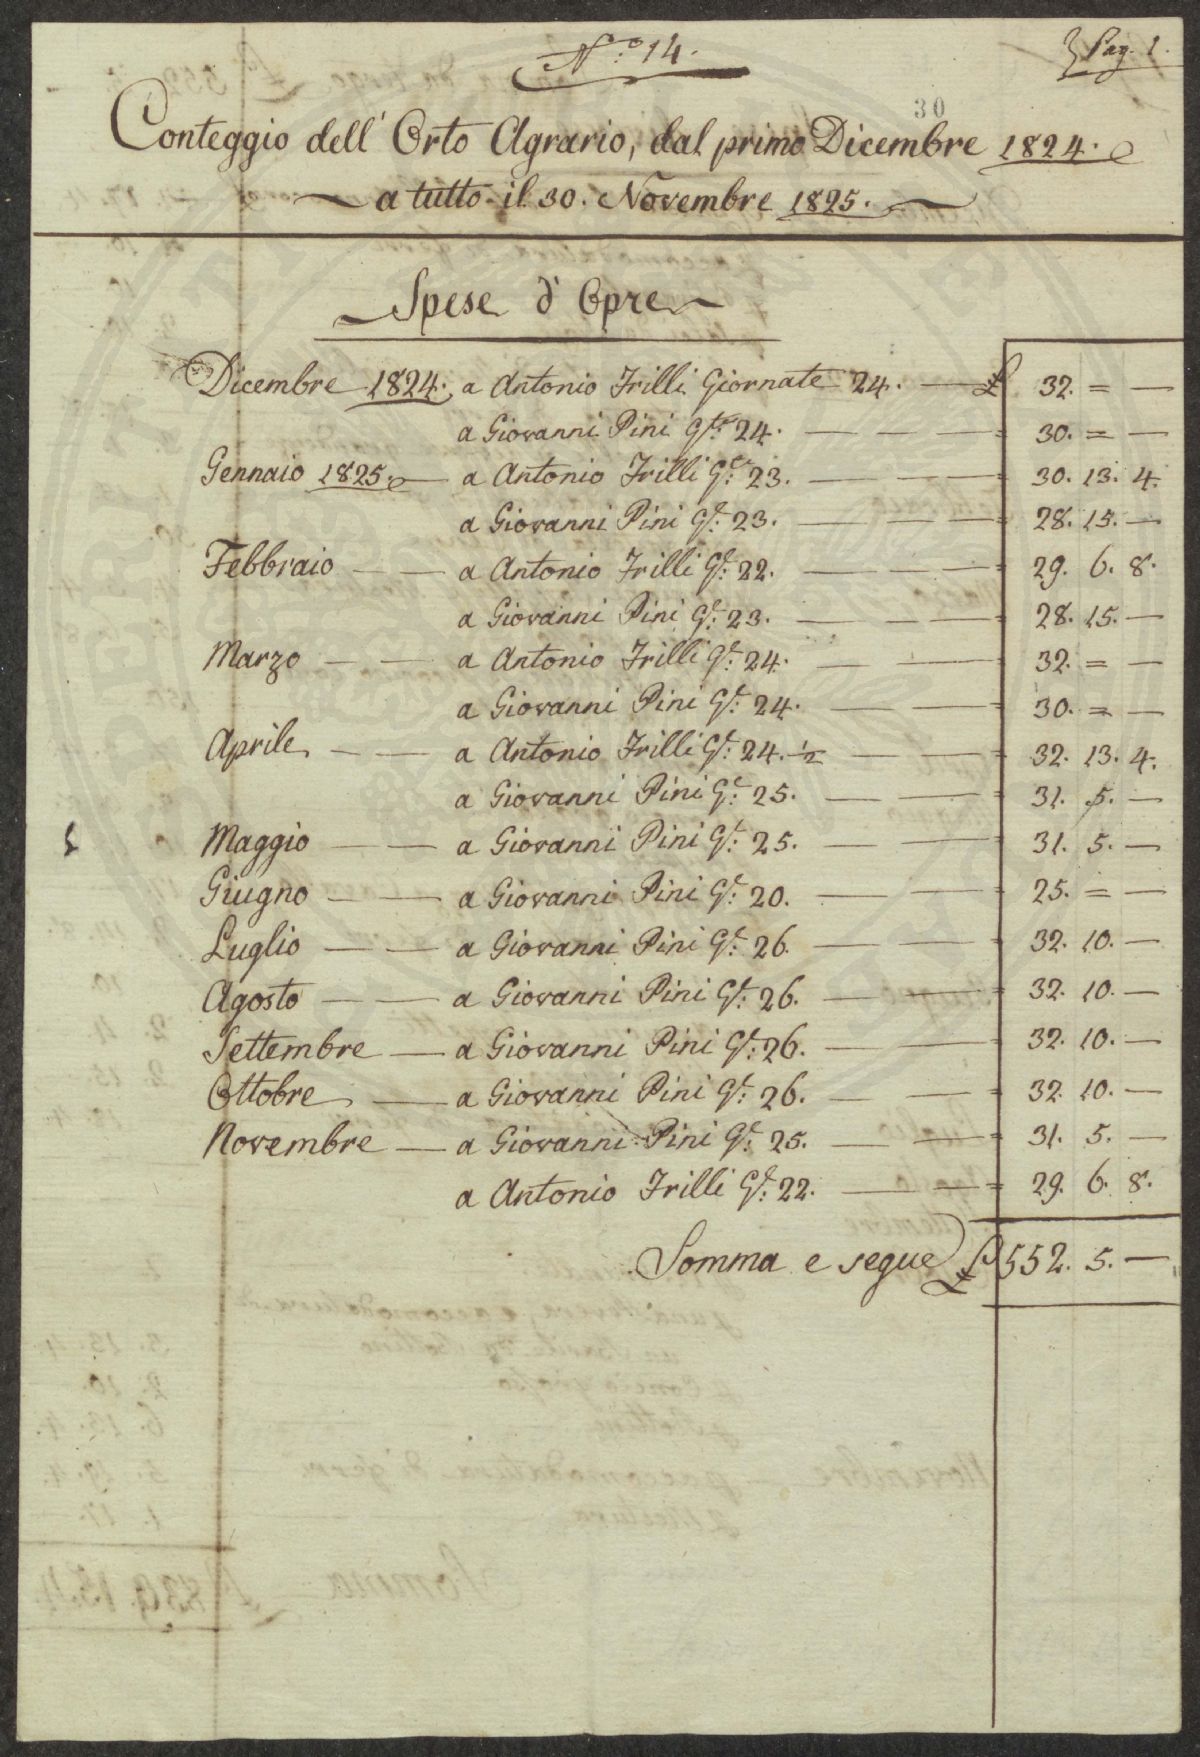 N.º 14.
Pag. 1.
30
Conteggio dell' Orto Agrario, dal primo Dicembre 1824.
a tutto il 30. Novembre 1825.
Spese d' Opre
Dicembre 1824. a Antonio Frilli Giornate 24. — £ 32. = —
a Giovanni Pini G.te 24. — — — = 30. = —
Gennaio 1825. — a Antonio Frilli G.e 23. — — — = 30. 13. 4.
a Giovanni Pini G.e 23. — — — = 28. 15. —
Febbraio — — a Antonio Frilli G.e 22. — — — = 29. 6. 8.
a Giovanni Pini G.e 23. — — — = 28. 15. —
Marzo — — a Antonio Frilli G.e 24. — — = 32. = —
a Giovanni Pini G.e 24. — — = 30. = —
Aprile — — a Antonio Frilli G.e 24. ½ — — = 32. 13. 4.
a Giovanni Pini G.e 25. — — = 31. 5. —
Maggio — — a Giovanni Pini G.e 25. — — = 31. 5. —
Giugno — — a Giovanni Pini G.e 20. — — = 25. = —
Luglio — — a Giovanni Pini G.e 26. — — = 32. 10. —
Agosto — — a Giovanni Pini G.e 26. — — = 32. 10. —
Settembre — a Giovanni Pini G.e 26. — — = 32. 10. —
Ottobre — a Giovanni Pini G.e 26. — — = 32. 10. —
Novembre — a Giovanni Pini G.e 25. — — = 31. 5. —
a Antonio Frilli G.e 22. — — = 29. 6. 8.
Somma e segue £ 552. 5. —